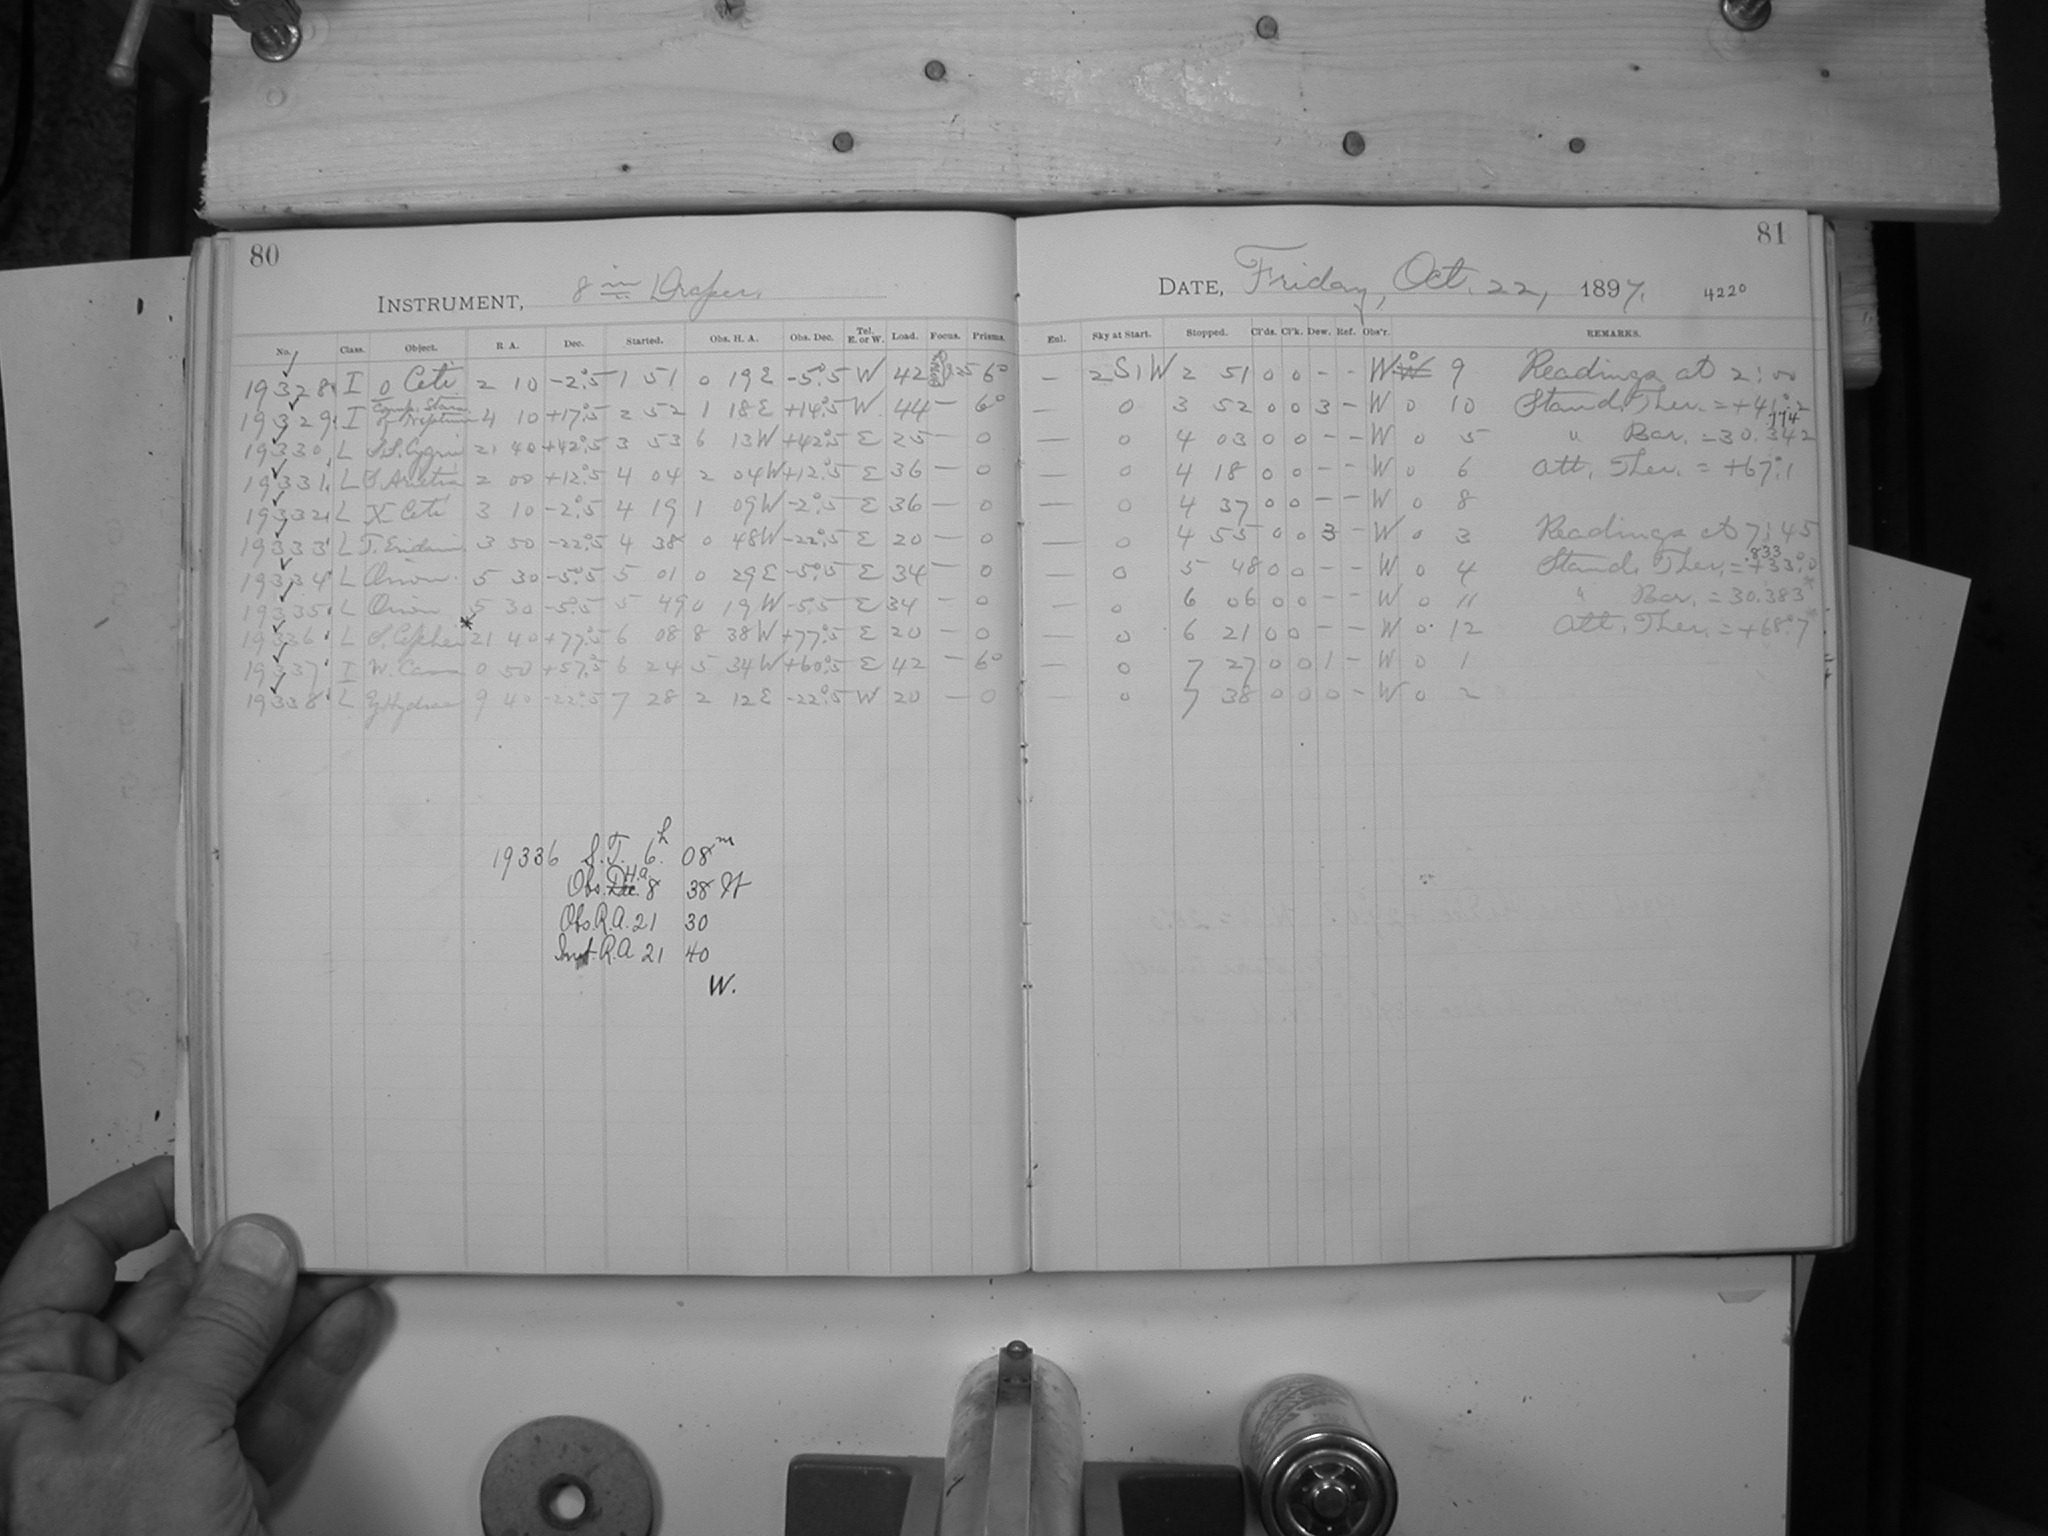 80
INSTRUMENT, 8 in Draper.
No. Class. Object. R A. Dec. Started. Obs. H. A. Obs. Dec. Tel. E. or W. Load. Focus. Prisms.
19328 I o Ceti 2 10 -2°.5 1 51 0 19 E -5°.5 W 42 25 6°
19329 I Comp. Stars of Neptune 4 10 +17°.5 2 52 1 18 E +14°.5 W 44 — 6°
19330 L SS. Cygni 21 40 +42°.5 3 53 6 13 W +42°.5 E 25 — 0
19331 L 2 00 +12°.5 4 04 2 04 W +12°.5 E 36 — 0
19332 L X Ceti 3 10 -2°.5 4 19 1 09 W -2°.5 E 36 — 0
19333 L T. Eridani 3 50 -22°.5 4 38 0 48 W -22°.5 E 20 — 0
19334 L Orion 5 30 -5°.5 5 01 0 29 E -5°.5 E 34 — 0
19335 L Orion 5 30 -5°.5 5 49 0 19 W -5.5 E 34 — 0
19336 L S. Cephei * 21 40 +77°.5 6 08 8 38 W +77°.5 E 20 — 0
19337 I W. Cass 0 50 +57°.5 6 24 5 34 W +60°.5 E 42 — 6°
19338 L Y Hydrae 9 40 -22°.5 7 28 2 12 E -22°.5 W 20 — 0
19336 S.T. 6h 08m
Obs. H.a. 8 38 W
Obs. R.A. 21 30
Inst. R.A 21 40
W.
81
DATE, Friday, Oct. 22, 1897. 4220
Enl. Sky at Start. Stopped. Cl'ds. Cl'k. Dew. Ref. Obs'r. REMARKS.
— 2S1W 2 51 0 0 – – W 0 9 Readings at 2:00
— 0 3 52 0 0 3 – W 0 10 Stand. Ther. = +41°.2
— 0 4 03 0 0 – – W 0 5 " Bar. = 30.342 .774
— 0 4 18 0 0 – – W 0 6 Att. Ther. = +67°.1
— 0 4 37 0 0 – – W 0 8
— 0 4 55 0 0 3 – W 0 3 Readings at 7:45
— 0 5 48 0 0 – – W 0 4 Stand. Ther. = +33°.0
— 0 6 06 0 0 – – W 0 11 " Bar. = 30.383* .833
— 0 6 21 0 0 – – W 0 12 Att. Ther. = +68°.7*
— 0 7 27 0 0 1 – W 0 1
— 0 7 38 0 0 0 – W 0 2